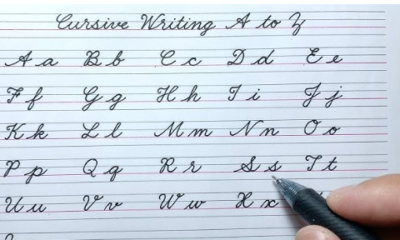 Cursive Writing A to Z
A a B b C c D d E e
F f G g H h I i J j
K k L l M m N n O o
P p Q q R r S s T t
U u V v W w X x